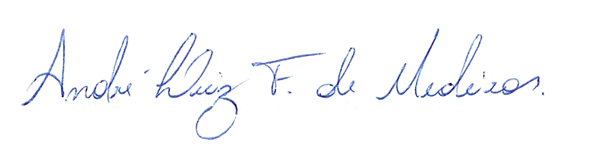 André Luiz F. de Medeiros.